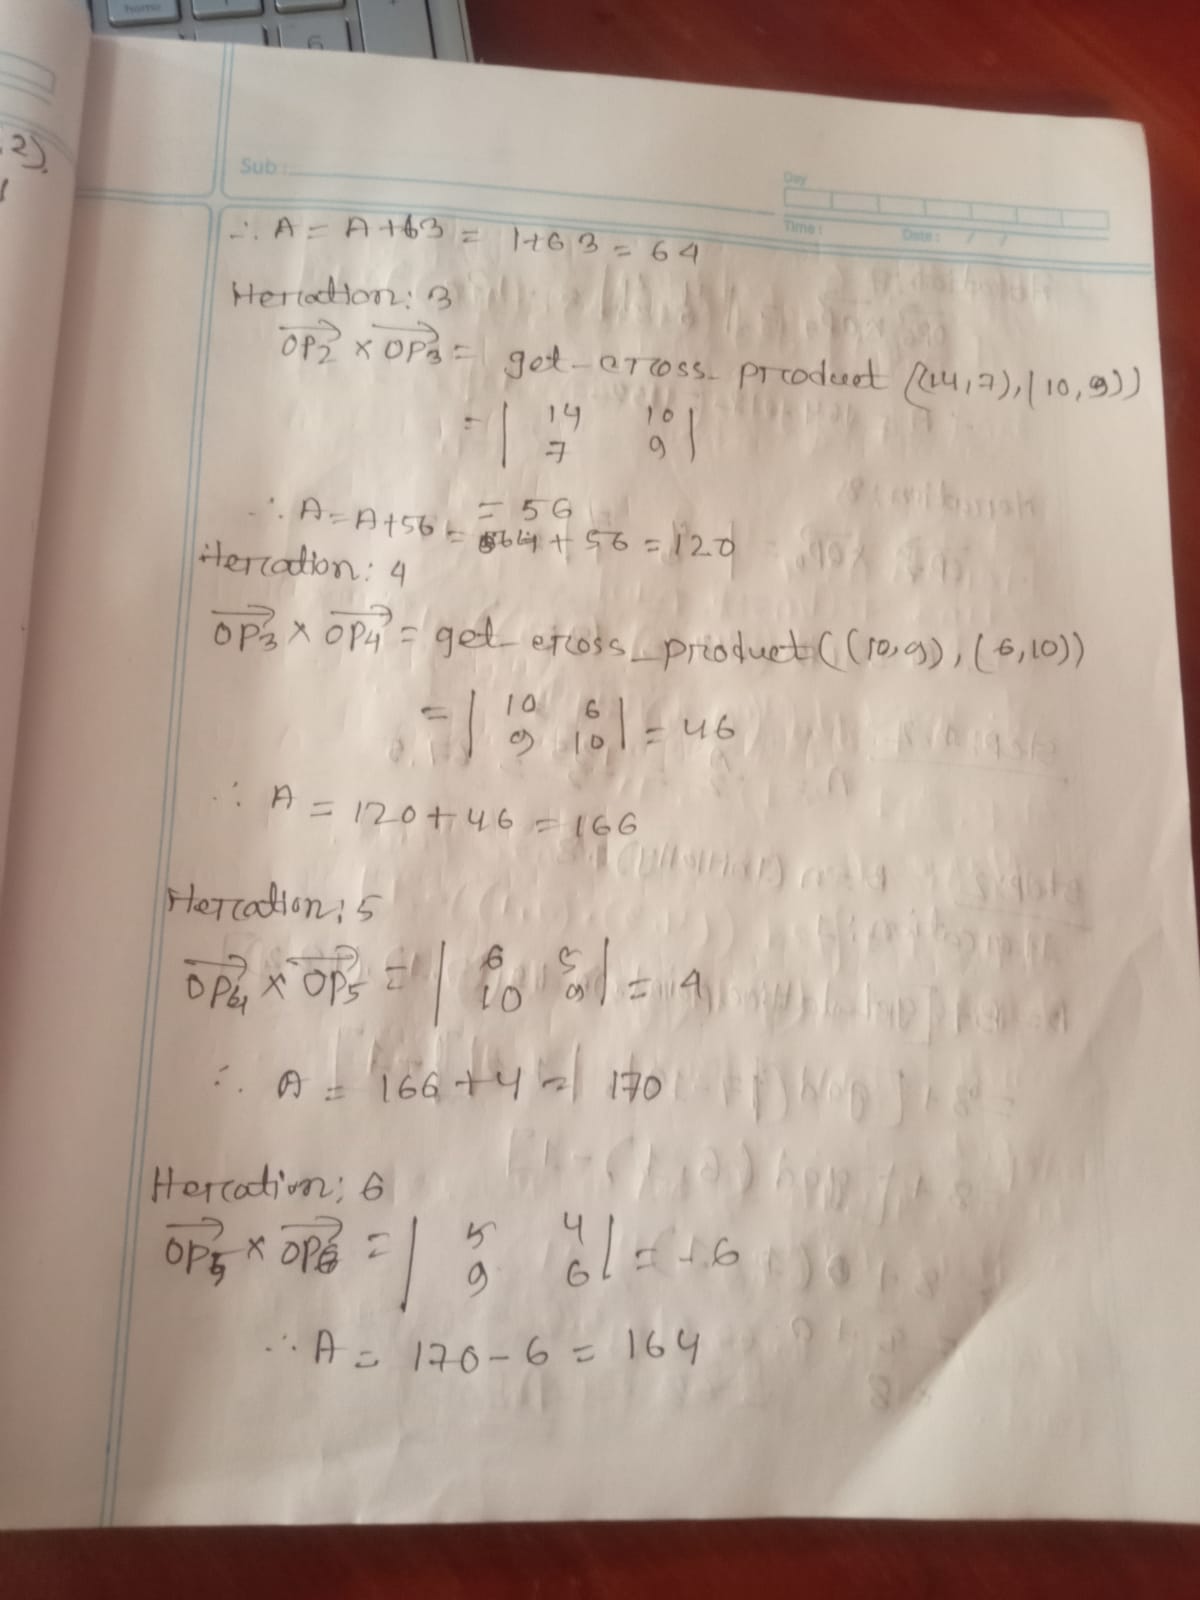 home
6
2).
Sub :
Day
Time :
Date : / /
∴ A = A+63 = 1+63 = 64
Iteration: 3
OP2 × OP3 = get-cross-product ((14,7),(10,9))
= | 14 10 |
7 9
= 56
∴ A = A+56 = 64 + 56 = 120
Iteration: 4
OP3 × OP4 = get-cross_product((10,9), (6,10))
= | 10 6 | = 46
9 10
∴ A = 120 + 46 = 166
Iteration: 5
OP4 × OP5 = | 6 5 | = 4
10 9
∴ A = 166 + 4 = 170
Iteration: 6
OP5 × OP6 = | 5 4 | = -6
9 6
∴ A = 170 - 6 = 164